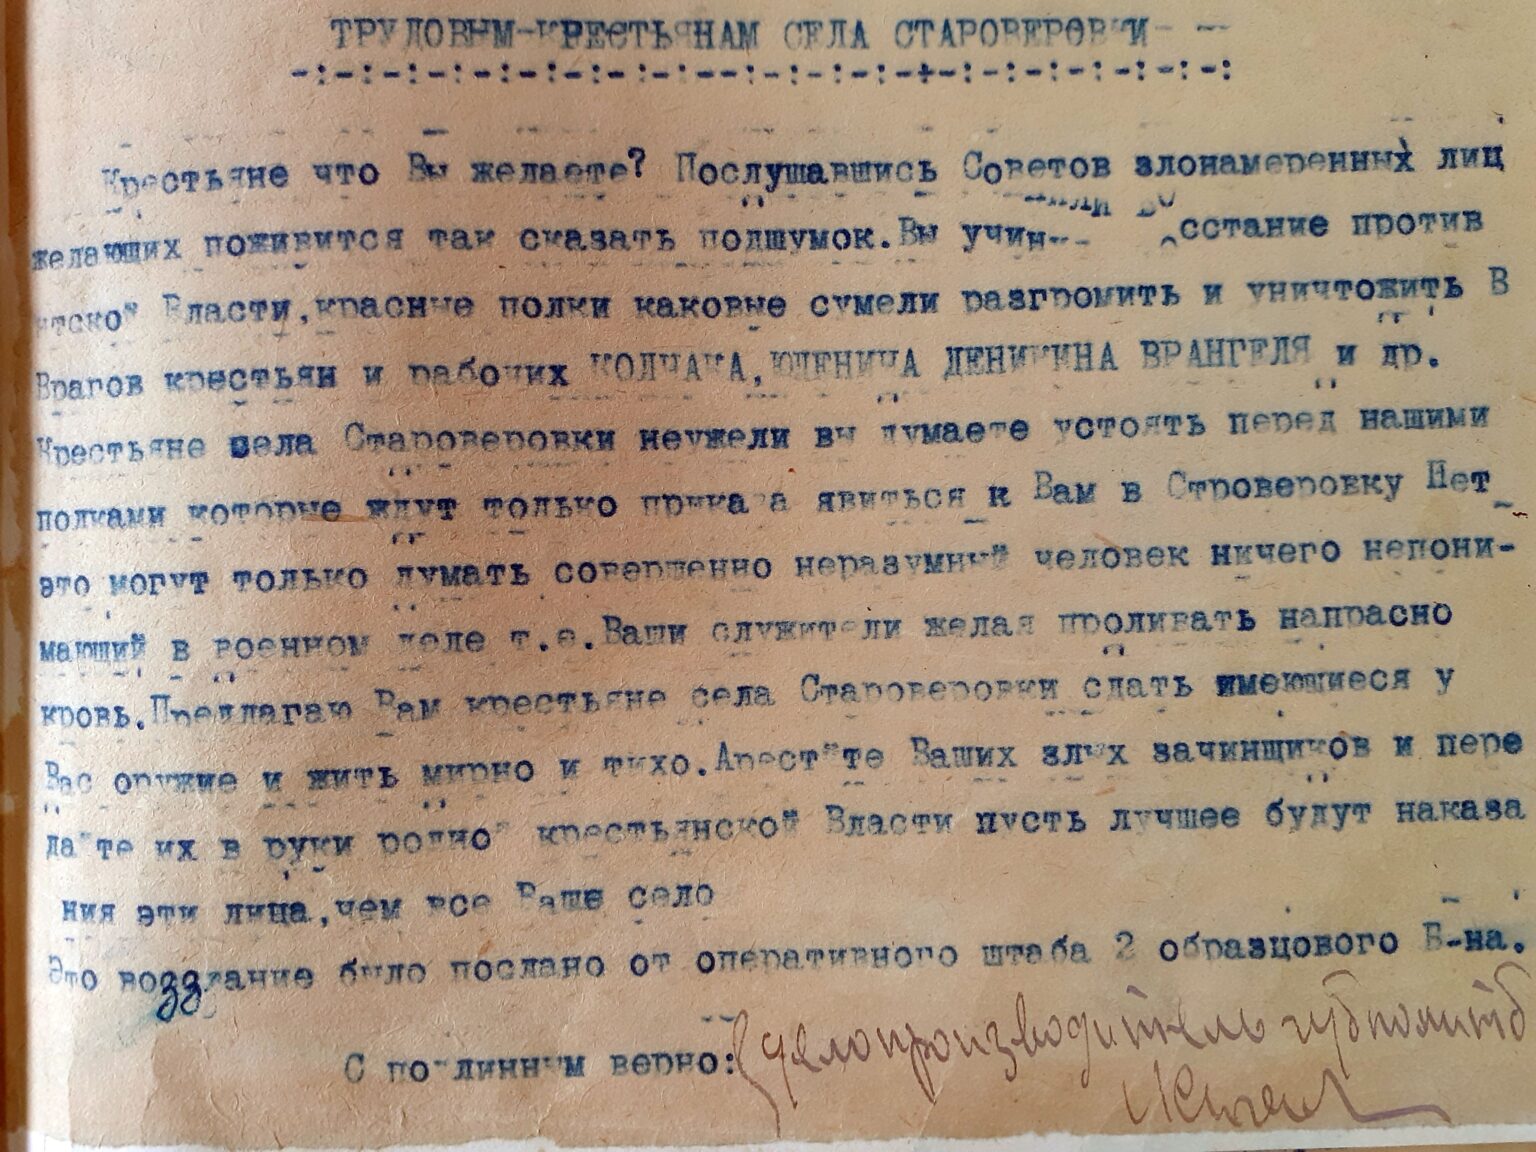 ТРУДОВЫМ-КРЕСТЬЯНАМ СЕЛА СТАРОВЕРОВКИ- --
-:-:-:-:-:-:-:-:-:--:-:-:-:-+-:-:-:-:-:-:-:
Крестьяне что Вы желаете? Послушавшись Советов злонамеренных лиц
желающих поживится так сказать подшумок.Вы учинили восстание против
Власти,красные полки каковые сумели разгромить и уничтожить В
Врагов крестьян и рабочих КОЛЧАКА,ЮДЕНИЧА ДЕНИКИНА ВРАНГЕЛЯ и др.
Крестьяне села Староверовки неужели вы думаете устоять перед нашими
полками которые ждут только приказа явиться к Вам в Строверовку Нет
это могут только думать совершенно неразумный человек ничего непони-
мающий в военном деле т.е.Ваши служители желая проливать напрасно
кровь.Предлагаю Вам крестьяне села Староверовки сдать имеющиеся у
Вас оружие и жить мирно и тихо.Арестйте Ваших злых зачинщиков и пере
дайте их в руки родной крестьянской Власти пусть лучшее будут наказа
ния эти лица,чем все Ваше село
Это воззвание было послано от оперативного штаба 2 образцового Б-на.
С подлинным верно: Делопроизводитель губполитб